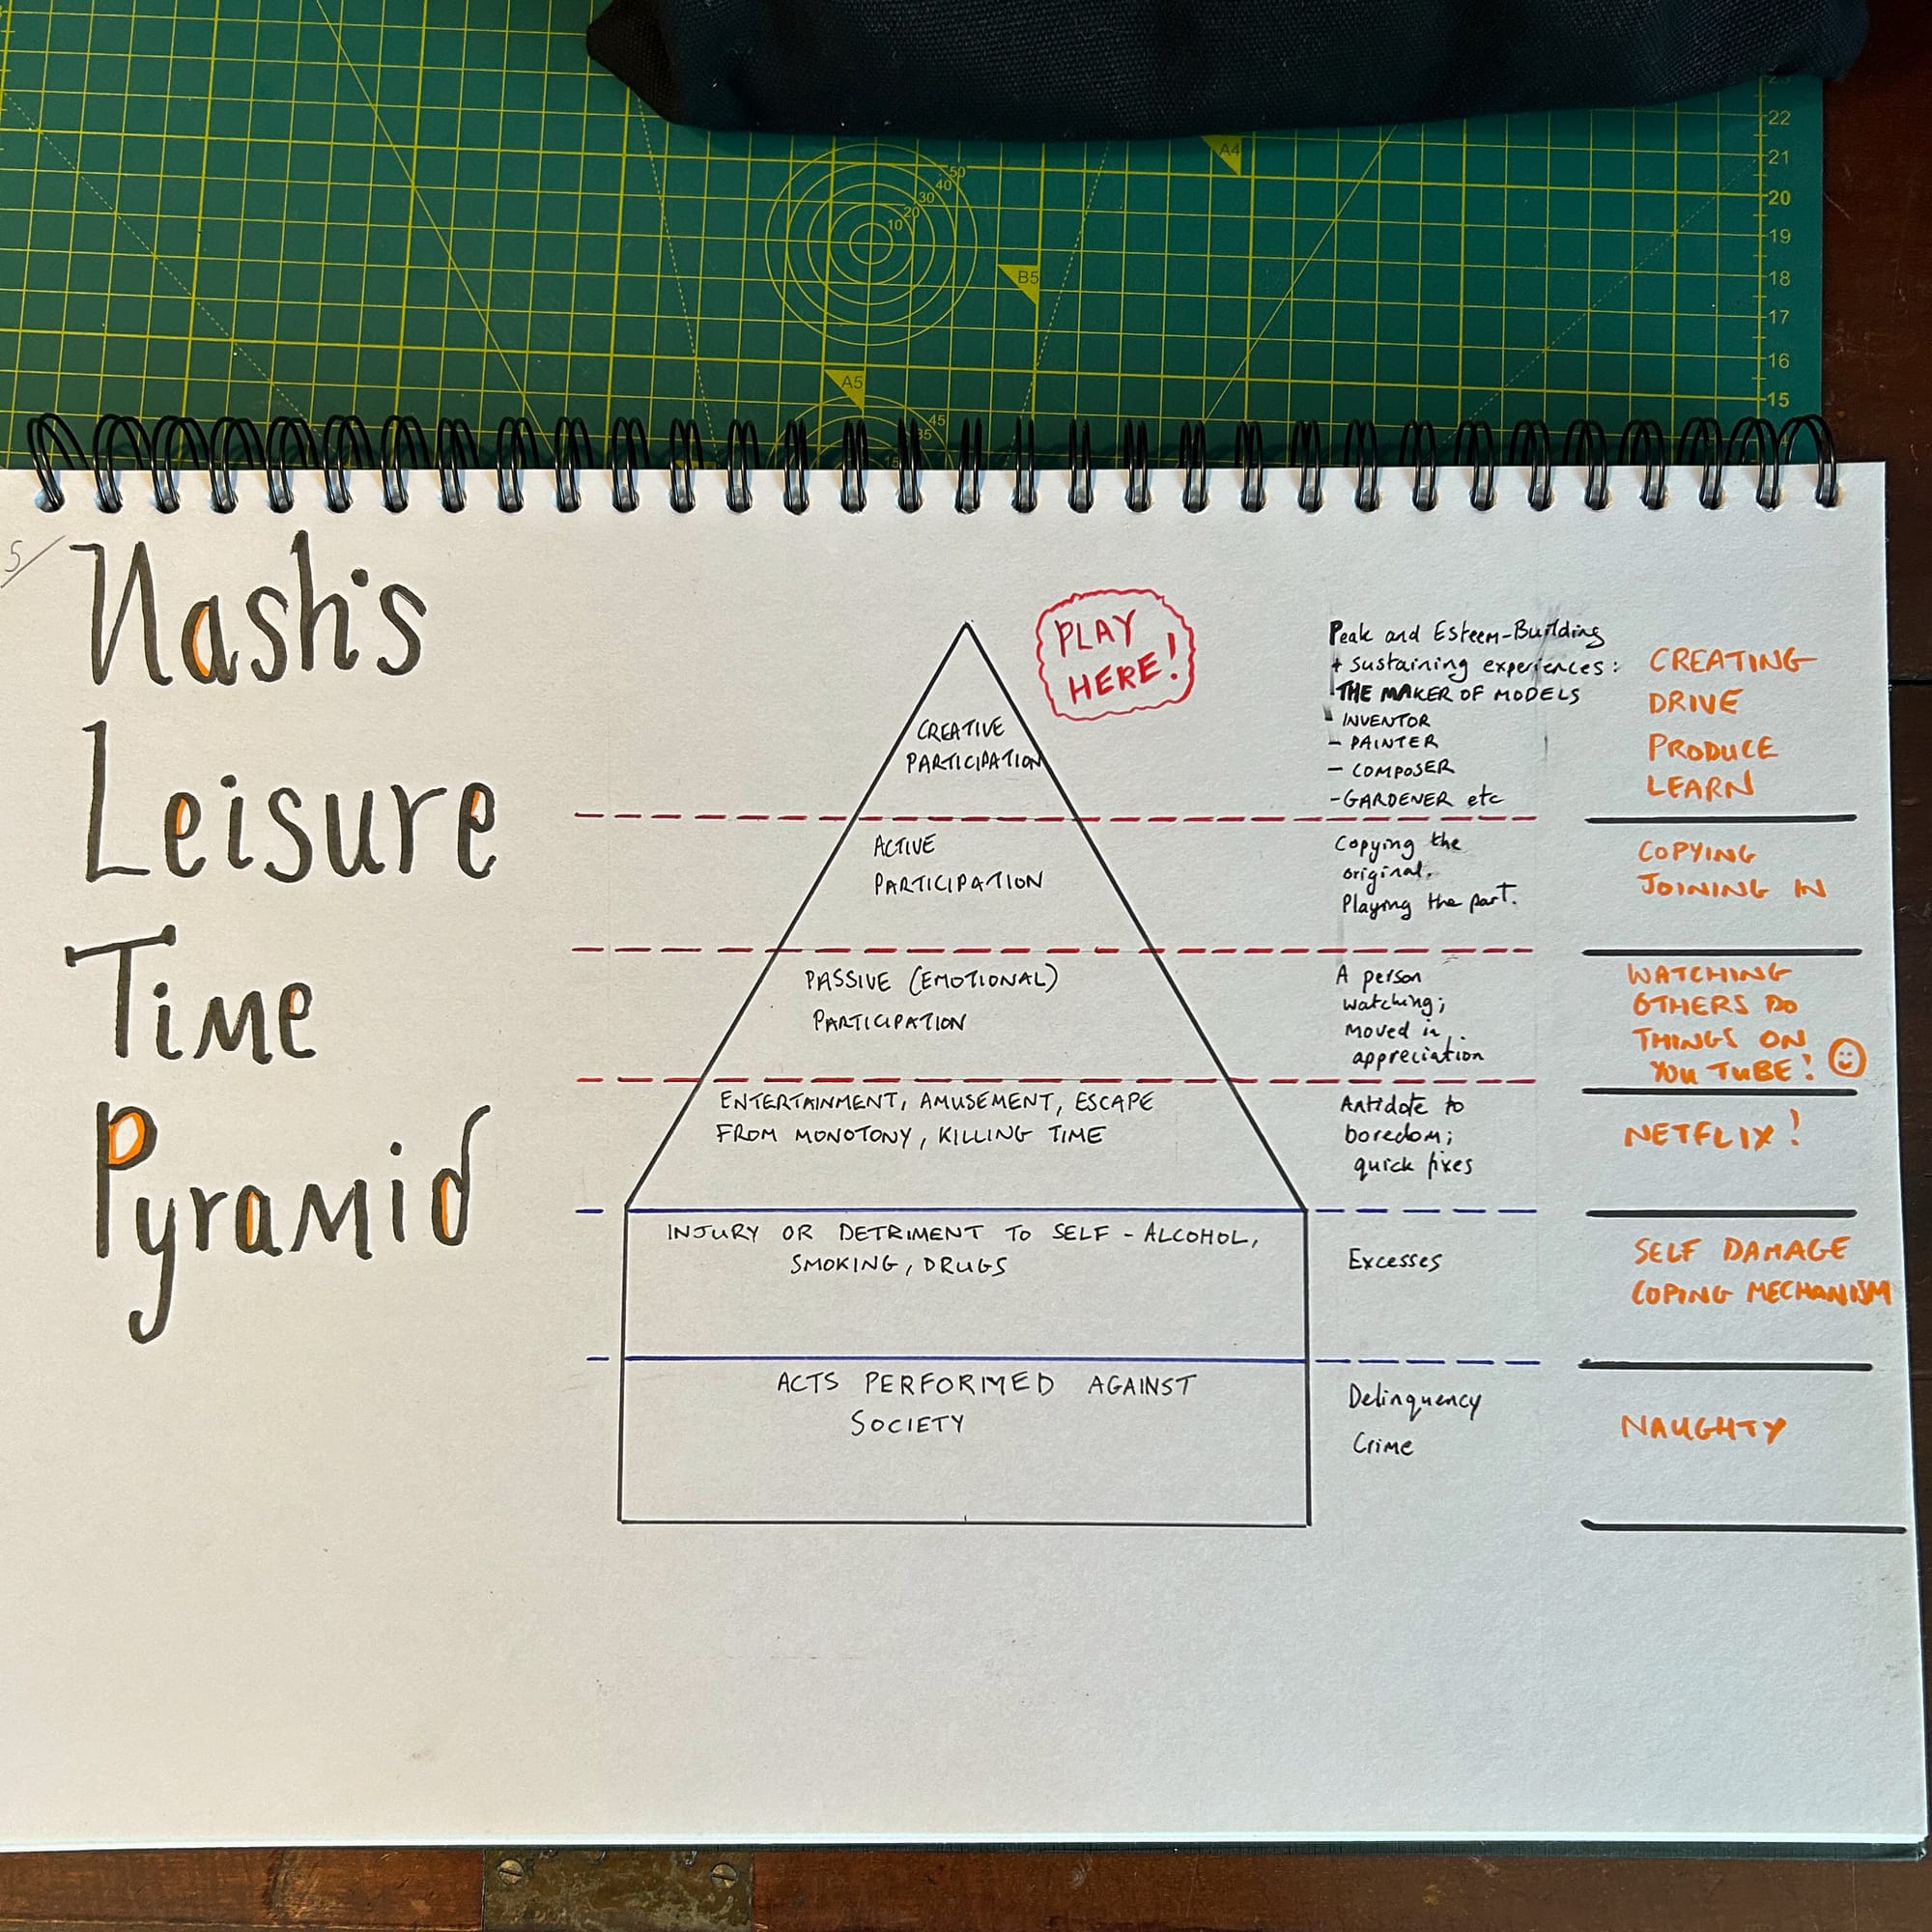 50
40
30
20
10
A4
B5
A5
45
35
15
22
21
20
19
18
17
16
15
5
Nash's
Leisure
Time
Pyramid
PLAY
HERE!
CREATIVE
PARTICIPATION
Peak and Esteem-Building
+ sustaining experiences:
THE MAKER OF MODELS
- INVENTOR
- PAINTER
- COMPOSER
- GARDENER etc
CREATING
DRIVE
PRODUCE
LEARN
ACTIVE
PARTICIPATION
Copying the
original.
Playing the part.
COPYING
JOINING IN
PASSIVE (EMOTIONAL)
PARTICIPATION
A person
watching;
moved in
appreciation
WATCHING
OTHERS DO
THINGS ON
YOU TUBE!
ENTERTAINMENT, AMUSEMENT, ESCAPE
FROM MONOTONY, KILLING TIME
Antidote to
boredom;
quick fixes
NETFLIX!
INJURY OR DETRIMENT TO SELF - ALCOHOL,
SMOKING, DRUGS
Excesses
SELF DAMAGE
COPING MECHANISM
ACTS PERFORMED AGAINST
SOCIETY
Delinquency
Crime
NAUGHTY